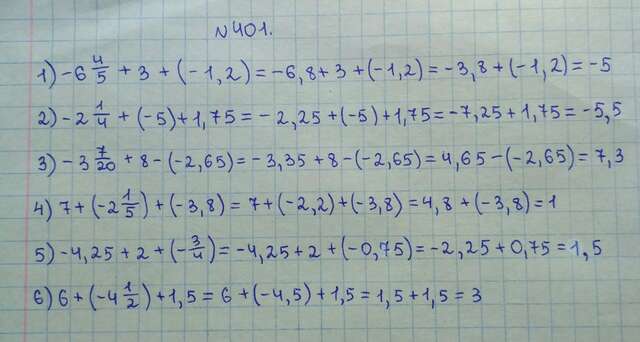 N401.
1) -6 4/5 + 3 + (-1,2) = -6,8 + 3 + (-1,2) = -3,8 + (-1,2) = -5
2) -2 1/4 + (-5) + 1,75 = -2,25 + (-5) + 1,75 = -7,25 + 1,75 = -5,5
3) -3 7/20 + 8 - (-2,65) = -3,35 + 8 - (-2,65) = 4,65 - (-2,65) = 7,3
4) 7 + (-2 1/5) + (-3,8) = 7 + (-2,2) + (-3,8) = 4,8 + (-3,8) = 1
5) -4,25 + 2 + (-3/4) = -4,25 + 2 + (-0,75) = -2,25 + 0,75 = 1,5
6) 6 + (-4 1/2) + 1,5 = 6 + (-4,5) + 1,5 = 1,5 + 1,5 = 3